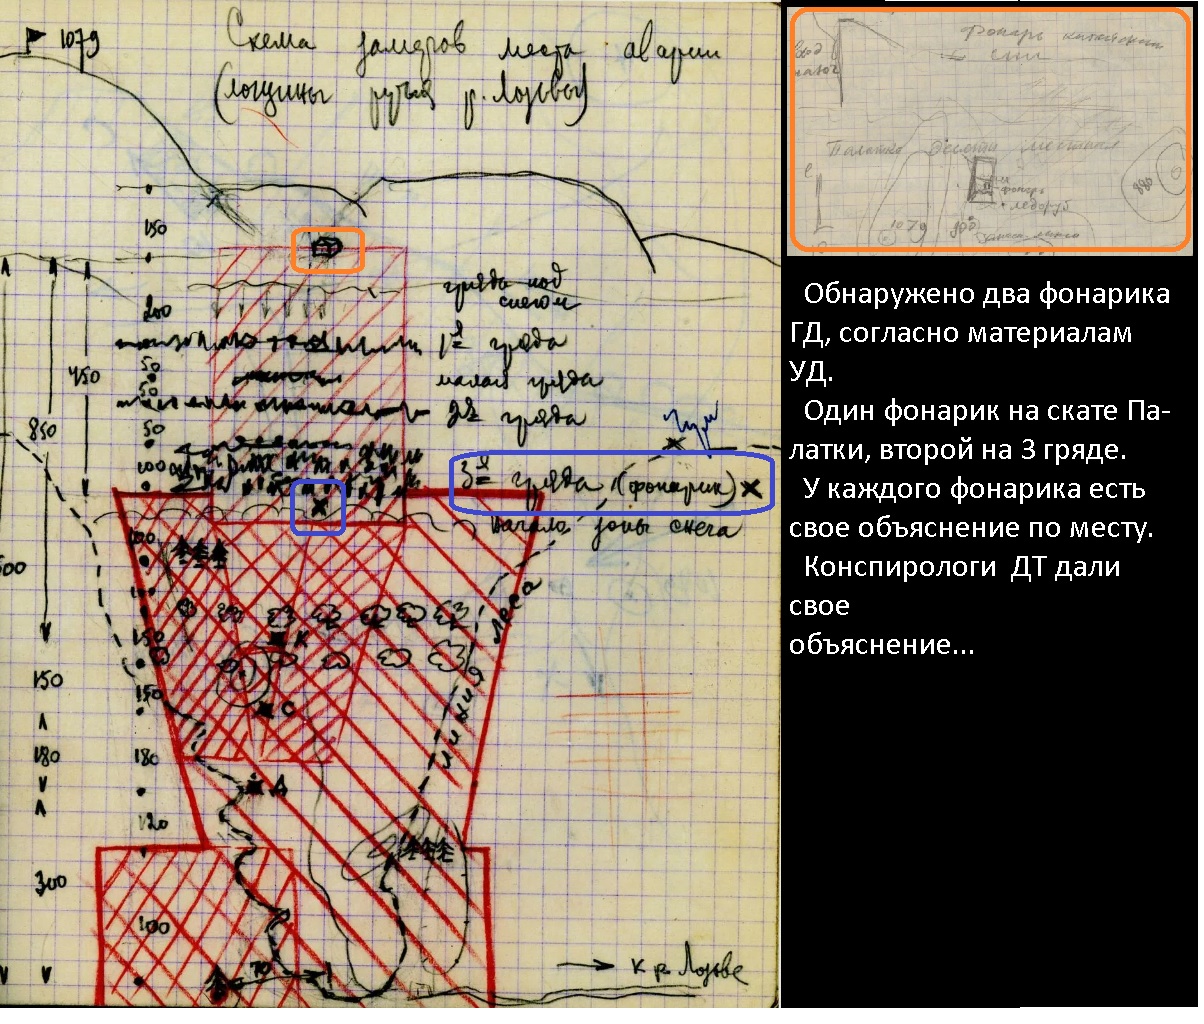 1079
Схема замеров места аварии
(лощины ручья р. Лозьвы)
150
200
50
50
50
100
гряда под
снегом
1я гряда
малая гряда
2я гряда
3я гряда (фонарик) X
Начало зоны снега
450
850
чум
линия леса
100
150
150
180
120
100
150
180
300
К
С
Д
70
к р. Лозьве
Фонарь китайский
Палатка Десяти местная
фонарь
ледоруб
1079
880
Обнаружено два фонарика
ГД, согласно материалам
УД.
Один фонарик на скате Па-
латки, второй на 3 гряде.
У каждого фонарика есть
свое объяснение по месту.
Конспирологи ДТ дали
свое
объяснение...